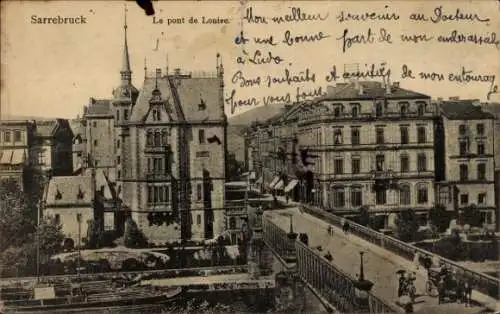 Sarrebruck
Le pont de Louise.
Mon meilleur souvenir au Docteur
et une bonne part de mon embrassal
à Ludo
Bons souhaits et amitiés de mon entourage
pour vous tous